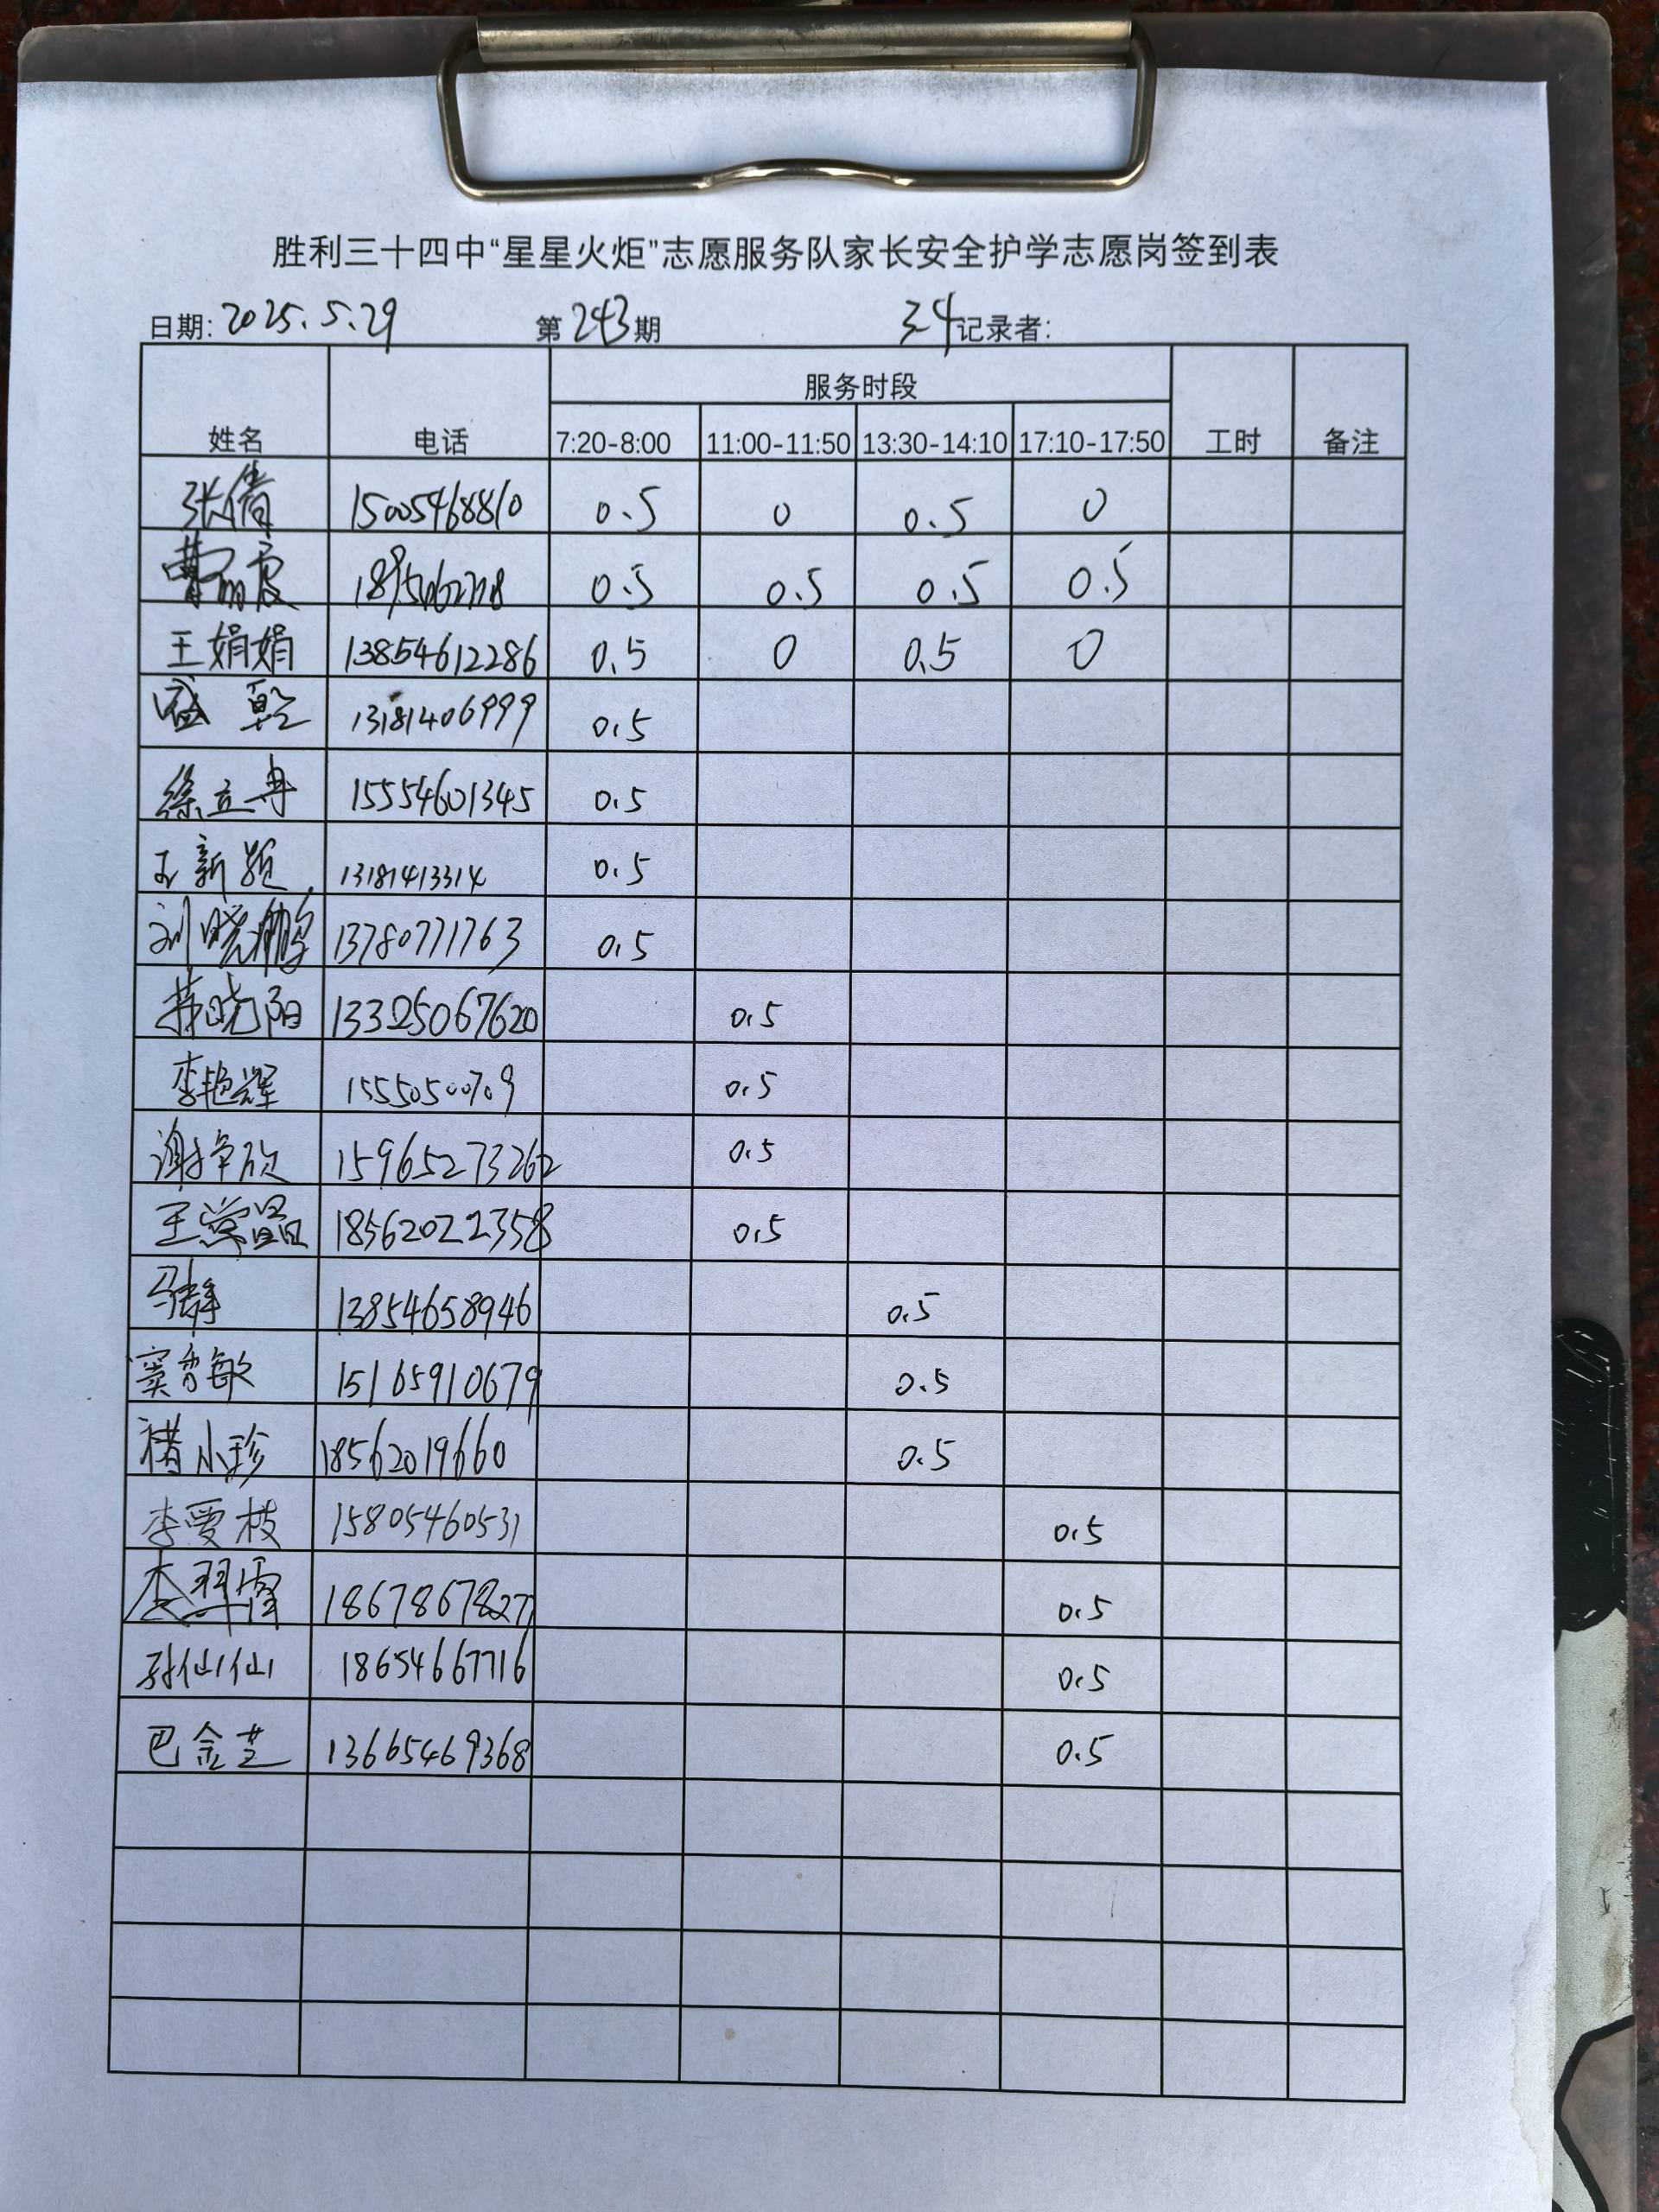 胜利三十四中“星星火炬”志愿服务队家长安全护学志愿岗签到表
日期: 2025.5.29 第 243 期 3.4 记录者:
服务时段
姓名 电话 7:20-8:00 11:00-11:50 13:30-14:10 17:10-17:50 工时 备注
张倩 15005468810 0.5 0 0.5 0
曹丽霞 0.5 0.5 0.5 0.5
王娟娟 13854612286 0.5 0 0.5 0
盛 乾 13181406999 0.5
徐立冉 15554601345 0.5
王新颖 13181413314 0.5
刘晓鹏 13780771763 0.5
晓阳 13325067620 0.5
李艳辉 15550500709 0.5
谢 欣 15965273262 0.5
王莹晶 18562022358 0.5
马静 13854658946 0.5
窦香敏 15165910679 0.5
褚小珍 18562019660 0.5
李爱枝 15805460531 0.5
李翠霞 18678678277 0.5
孙仙仙 18654667716 0.5
巴金芝 13665469368 0.5